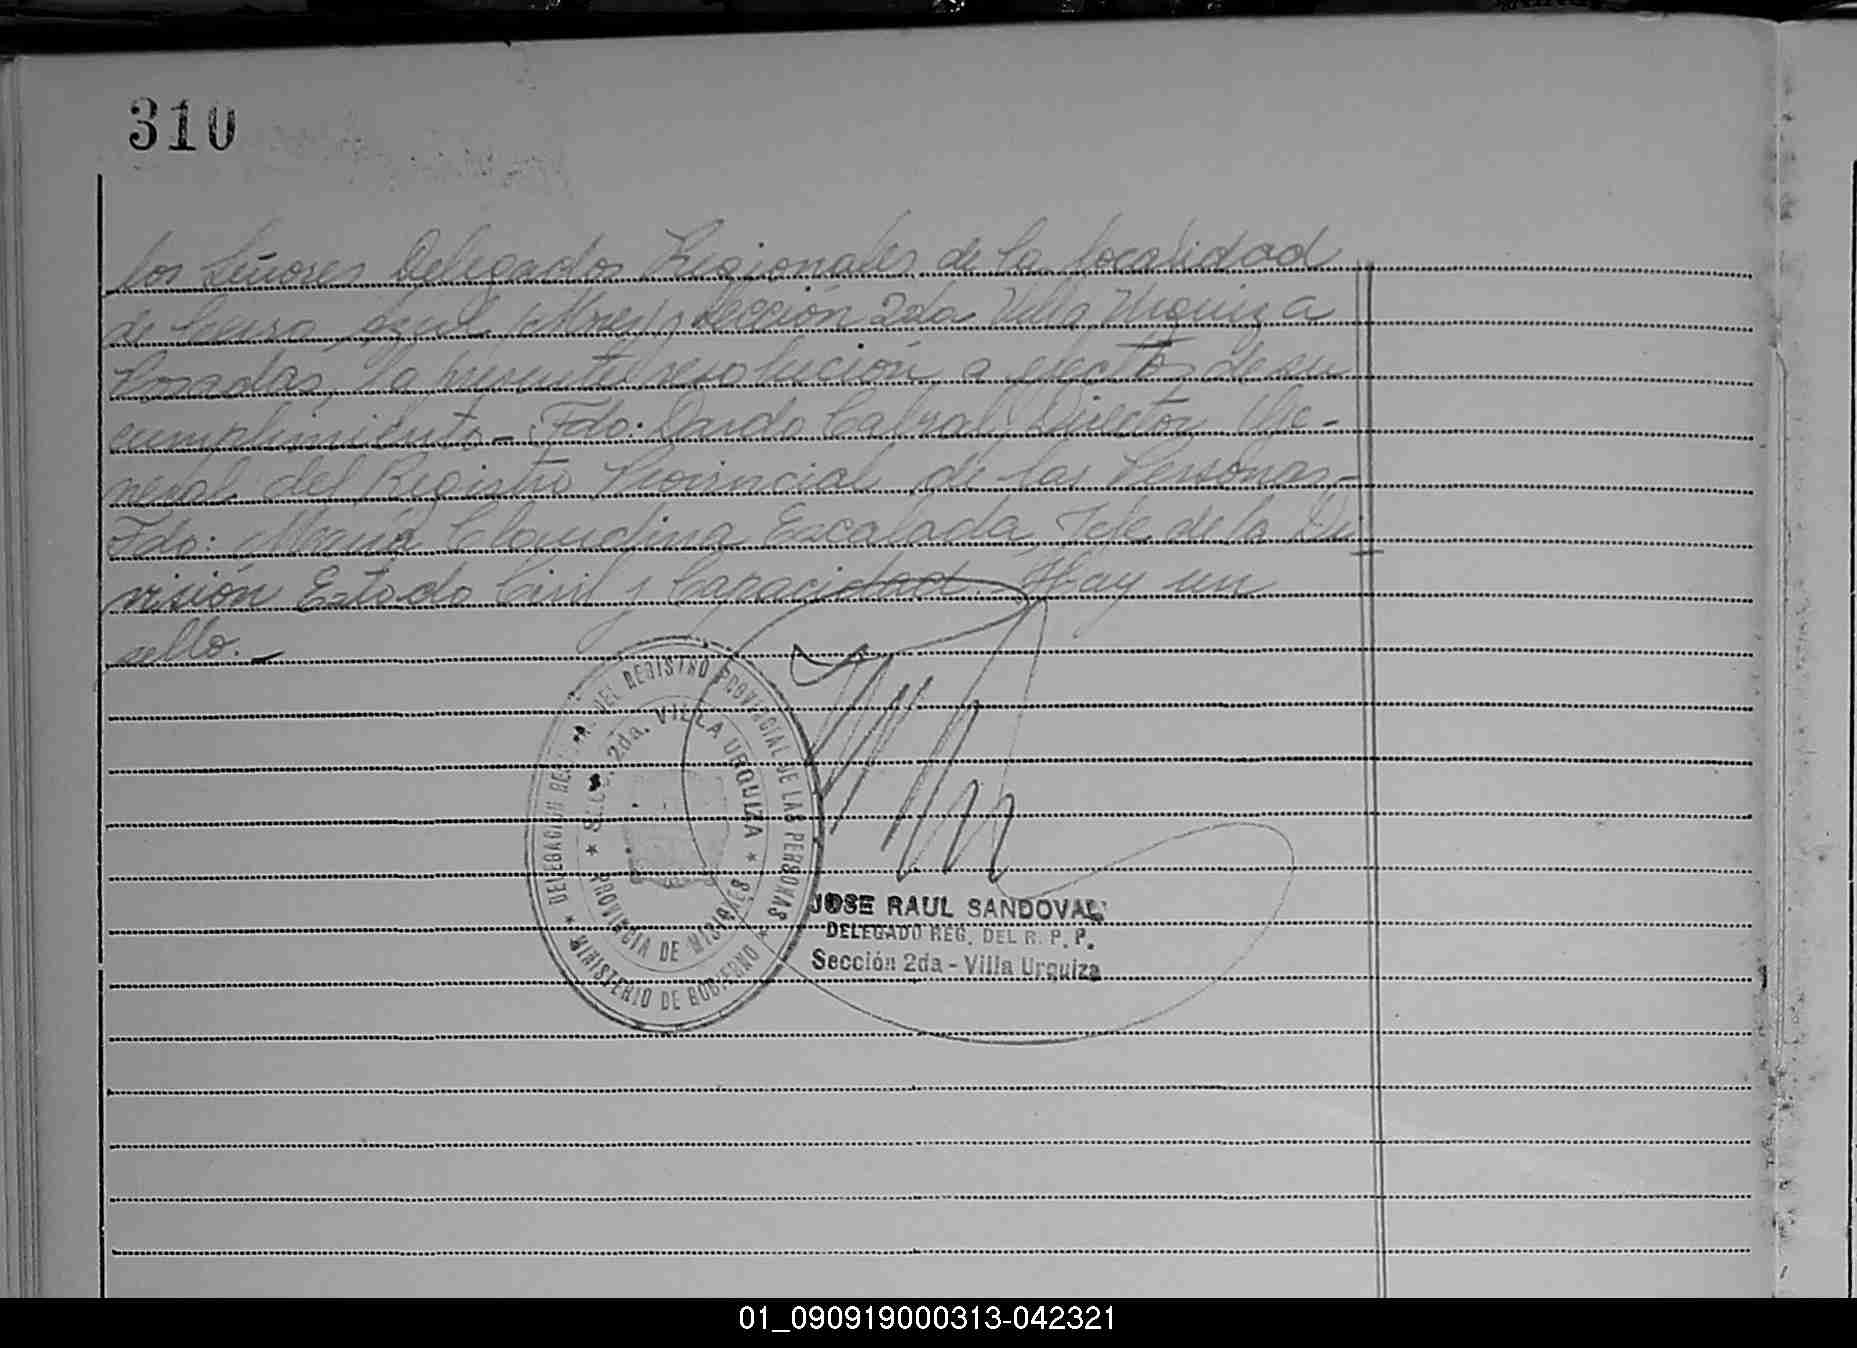 310
los Señores Delegados Regionales de la localidad
de Cerro Azul (Mnes), Sección 2da Villa Urquiza
Posadas, la presente resolución a efectos de su
cumplimiento.- Fdo: Dardo Cabral, Director Ge-
neral del Registro Provincial de las Personas-
Fdo: María Claudina Escalada, Jefe de la Di-
visión Estado Civil y Capacidad.- Hay un
sello.-
DELEGACION REGIONAL DEL REGISTRO PROVINCIAL DE LAS PERSONAS
* MINISTERIO DE GOBIERNO *
* SECC. 2da. VILLA URQUIZA *
PROVINCIA DE MISIONES
JOSE RAUL SANDOVAL
DELEGADO REG. DEL R. P. P.
Sección 2da - Villa Urquiza
01_090919000313-042321